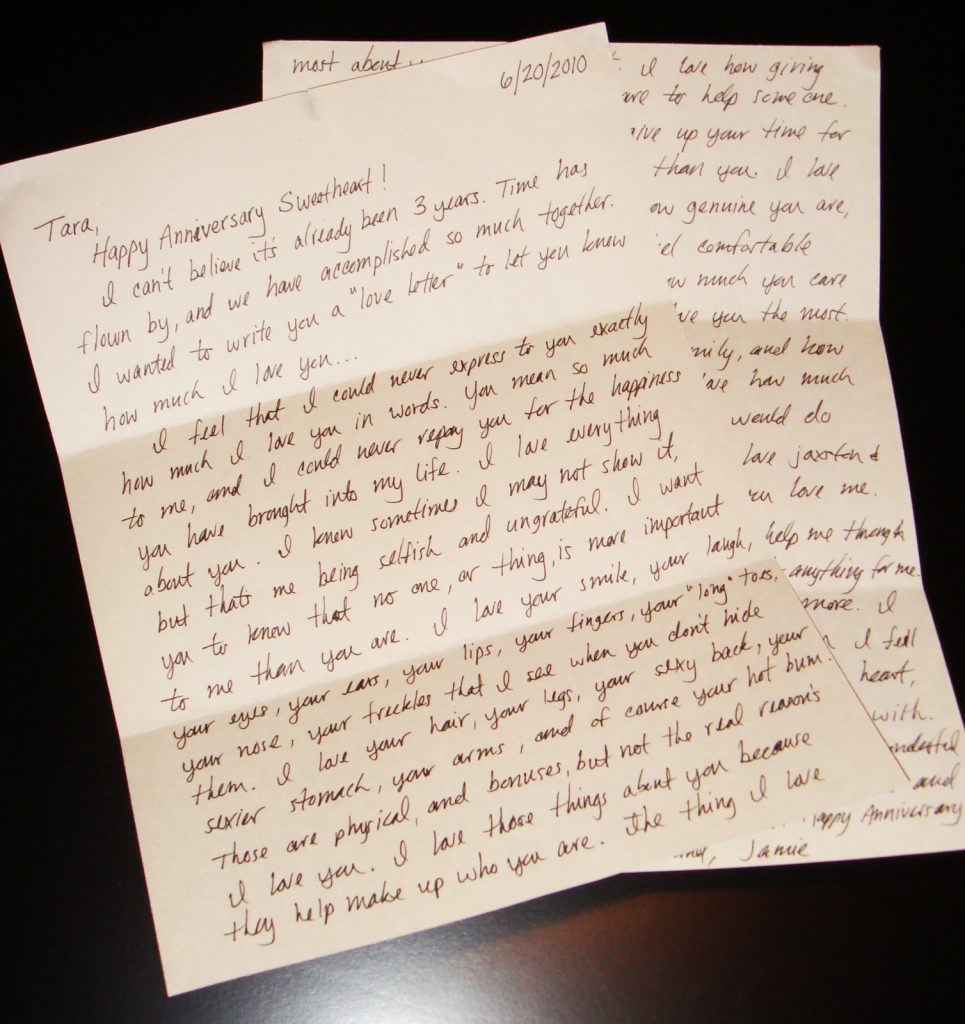 6/20/2010
Tara,
Happy Anniversary Sweetheart!
I can't believe it's already been 3 years. Time has
flown by, and we have accomplished so much together.
I wanted to write you a "love letter" to let you know
how much I love you...
I feel that I could never express to you exactly
how much I love you in words. You mean so much
to me, and I could never repay you for the happiness
you have brought into my life. I love everything
about you. I know sometimes I may not show it,
but that's me being selfish and ungrateful. I want
you to know that no one, or thing, is more important
to me than you are. I love your smile, your laugh,
your eyes, your ears, your lips, your fingers, your "long" toes,
your nose, your freckles that I see when you don't hide
them. I love your hair, your legs, your sexy back, your
sexier stomach, your arms, and of course your hot bum.
Those are physical, and bonuses, but not the real reason's
I love you. I love those things about you because
they help make up who you are. The thing I love
most about
I love how giving
to help someone.
up your time for
than you. I love
genuine you are,
comfortable
much you care
you the most.
and how
how much
would do
love jaxston &
love me.
help me through
anything for me.
more. I
I feel
heart,
with.
and
Happy Anniversary
Jamie